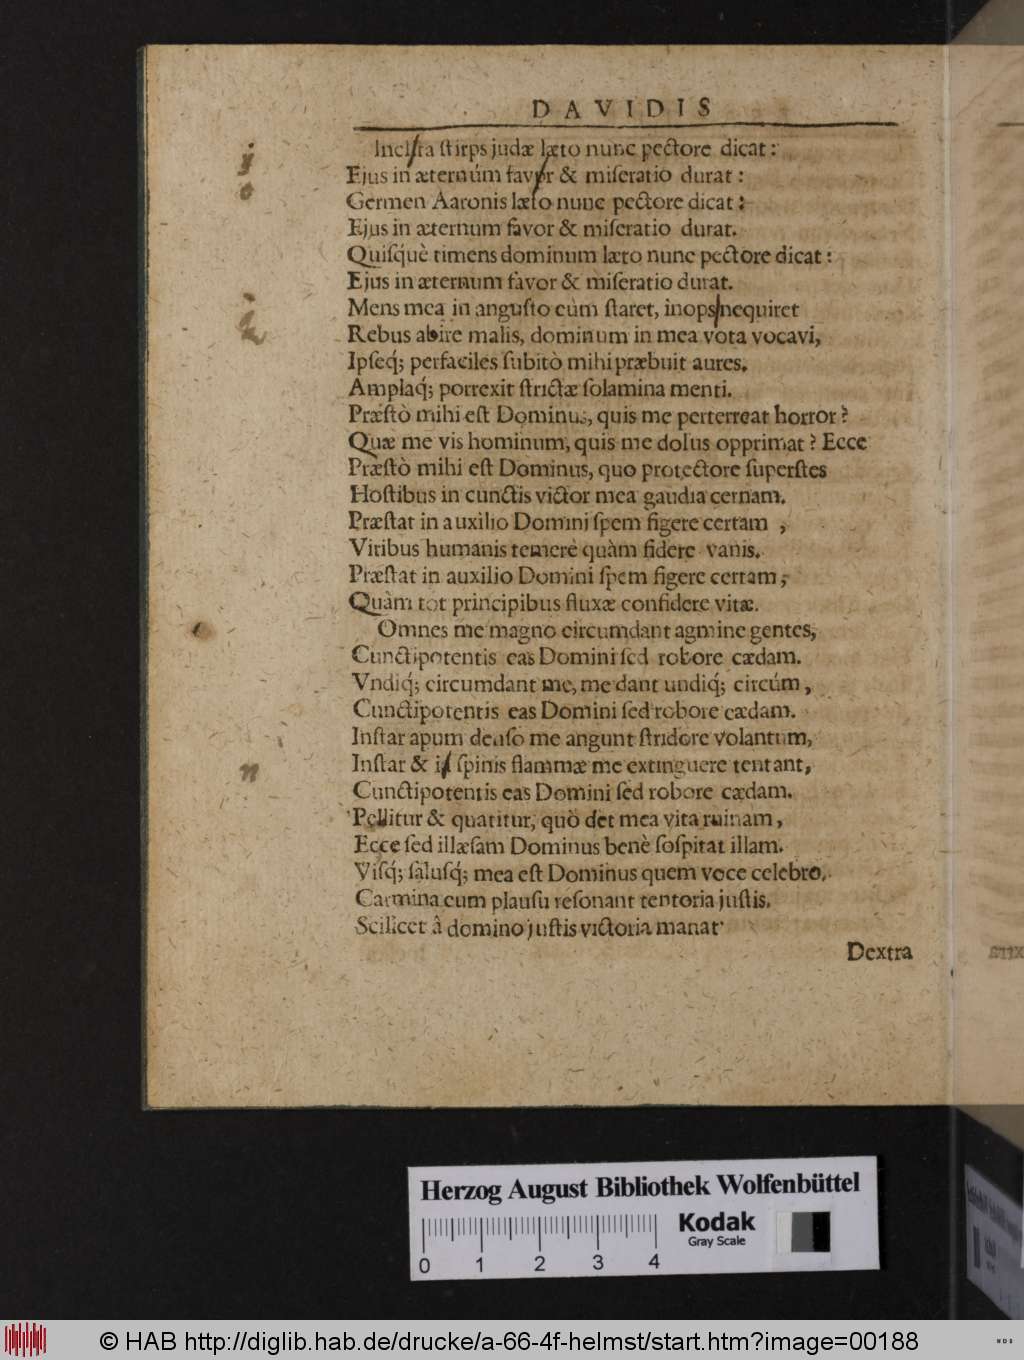 DAVIDIS
Inclſta ſtirps judæ læto nunc pectore dicat:
Ejus in æternúm favor & miſeratio durat:
Germen Aaronis læto nunc pectore dicat:
Ejus in æternum favor & miſeratio durat.
Quiſq́uè timens dominum læto nunc pectore dicat:
Ejus in æternum favor & miſeratio durat.
Mens mea in anguſto cùm ſtaret, inops nequiret
Rebus abire malis, dominum in mea vota vocavi,
Ipſeq́; perfaciles ſubitò mihi præbuit aures.
Amplaq́; porrexit ſtrictæ ſolamina menti.
Præſtò mihi eſt Dominus, quis me perterreat horror?
Quæ me vis hominum, quis me dolus opprimat? Ecce
Præſtò mihi eſt Dominus, quo protectore ſuperſtes
Hoſtibus in cunctis victor mea gaudia cernam.
Præſtat in auxilio Domini ſpem figere certam,
Viribus humanis temerè quàm fidere vanis.
Præſtat in auxilio Domini ſpem figere certam,
Quàm tot principibus fluxæ confidere vitæ.
Omnes me magno circumdant agmine gentes,
Cunctipotentis eas Domini ſed robore cædam.
Vndiq́; circumdant me, me dant undiq́; circúm,
Cunctipotentis eas Domini ſed robore cædam.
Inſtar apum denſo me angunt ſtridore volantum,
Inſtar & in ſpinis flammæ me extinguere tentant,
Cunctipotentis eas Domini ſed robore cædam.
Pellitur & quatitur, quò det mea vita ruinam,
Ecce ſed illæſam Dominus benè ſoſpitat illam.
Viſq́; ſaluſq́; mea eſt Dominus quem voce celebro.
Carmina cum plauſu reſonant tentoria juſtis.
Scilicet â domino juſtis victoria manat
Dextra
y
o
n
Herzog August Bibliothek Wolfenbüttel
Kodak
Gray Scale
0 1 2 3 4
© HAB http://diglib.hab.de/drucke/a-66-4f-helmst/start.htm?image=00188